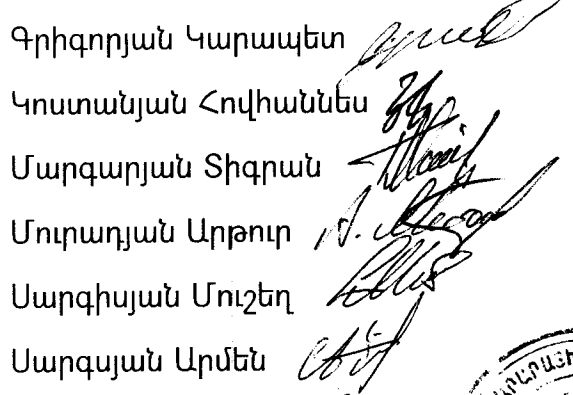 Գրիգորյան Կարապետ
Կոստանյան Հովհաննես
Մարգարյան Տիգրան
Մուրադյան Արթուր
Սարգիսյան Մուշեղ
Սարգսյան Արմեն